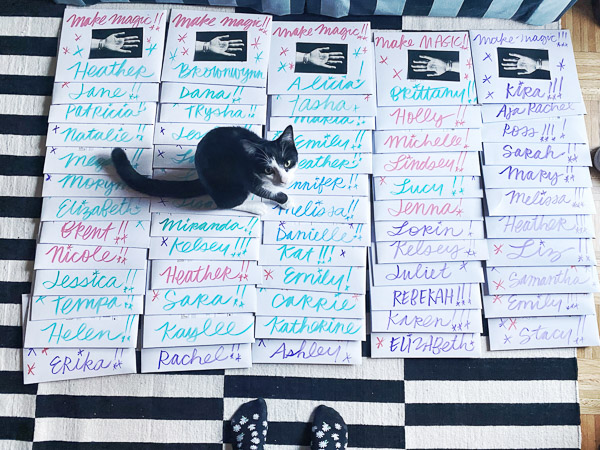 make magic!!
Heather
Jane!!
Patricia!
Natalie!!
Elizabeth
BRENT!!
Nicole!!
Jessica!!
TEMPA!!!
Helen!!
ERIKA!!!
make magic!!
Brownwynn
Dana!!
TRYSHA
Miranda
Kelsey!!!
Heather
SARA!!
Kaylee
Rachel!!
make magic!!
Alicia!
Tasha
MARIA
Emily!!
Heather
Jennifer
Melissa!!
Danielle
Kat!!!
Emily!
CARRIE
Katherine
Ashley!!
make MAGIC!!
BRittany!
Holly
Michelle
Lindsey!
Lucy!!
Jenna!
LORIN
Kelsey
Juliet
REBEKAH!!
KAREN!!
ELIZABeth
make magic!!!
KIRA!!!
Aja Rachel
ROSS!!!
SARAH!!
MARY!!
Melissa
Heather
Liz
Samantha
Emily!!
Stacy!!